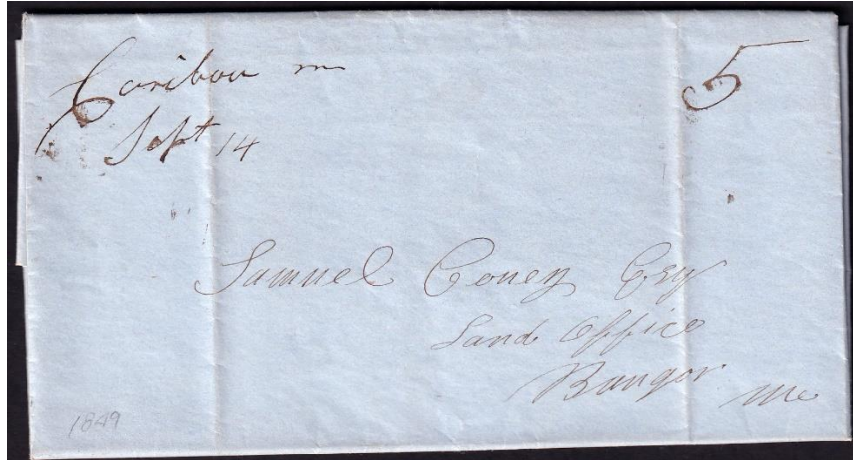 Caribou m
5
Sept 14
Samuel Coney Esq
Land Office
Bangor
Me
1849